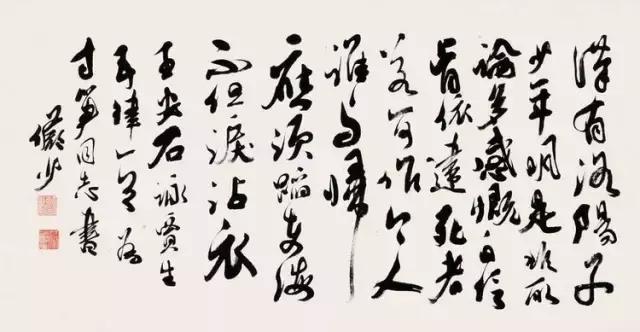 漢有洛陽子
少年明是非所
論多感慨自信
肯依違死者
若可作今人
誰與歸
應須蹈東海
不但淚沾衣
王安石詠賈生
五律一首為
同志書
儼少